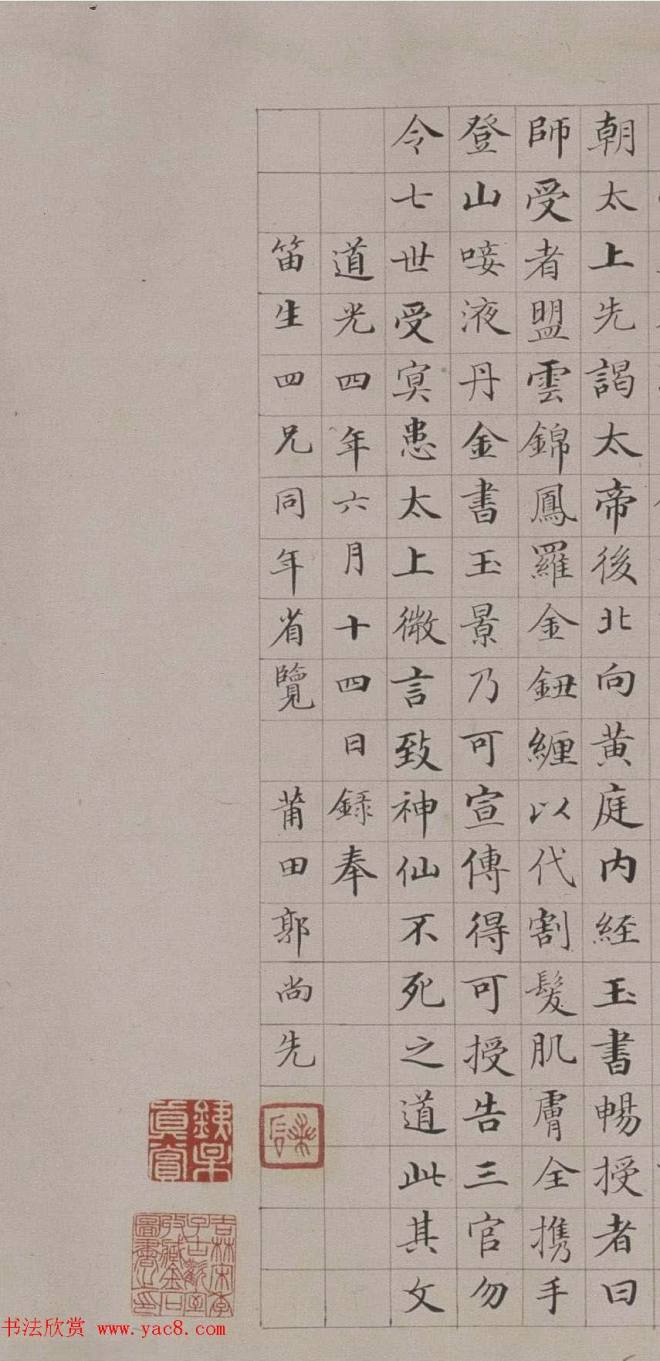 朝太上先謁太帝後北向黄庭内経玉書暢授者曰
師受者盟雲錦鳳羅金鈕纏以代割髮肌膚全携手
登山唼液丹金書玉景乃可宣傳得可授告三官勿
令七世受冥患太上微言致神仙不死之道此其文
道光四年六月十四日録奉
笛生四兄同年省覽 莆田郭尚先
銕某真賞
吉林宋季子古歡室收藏金石圖書之印
书法欣赏 www.yac8.com